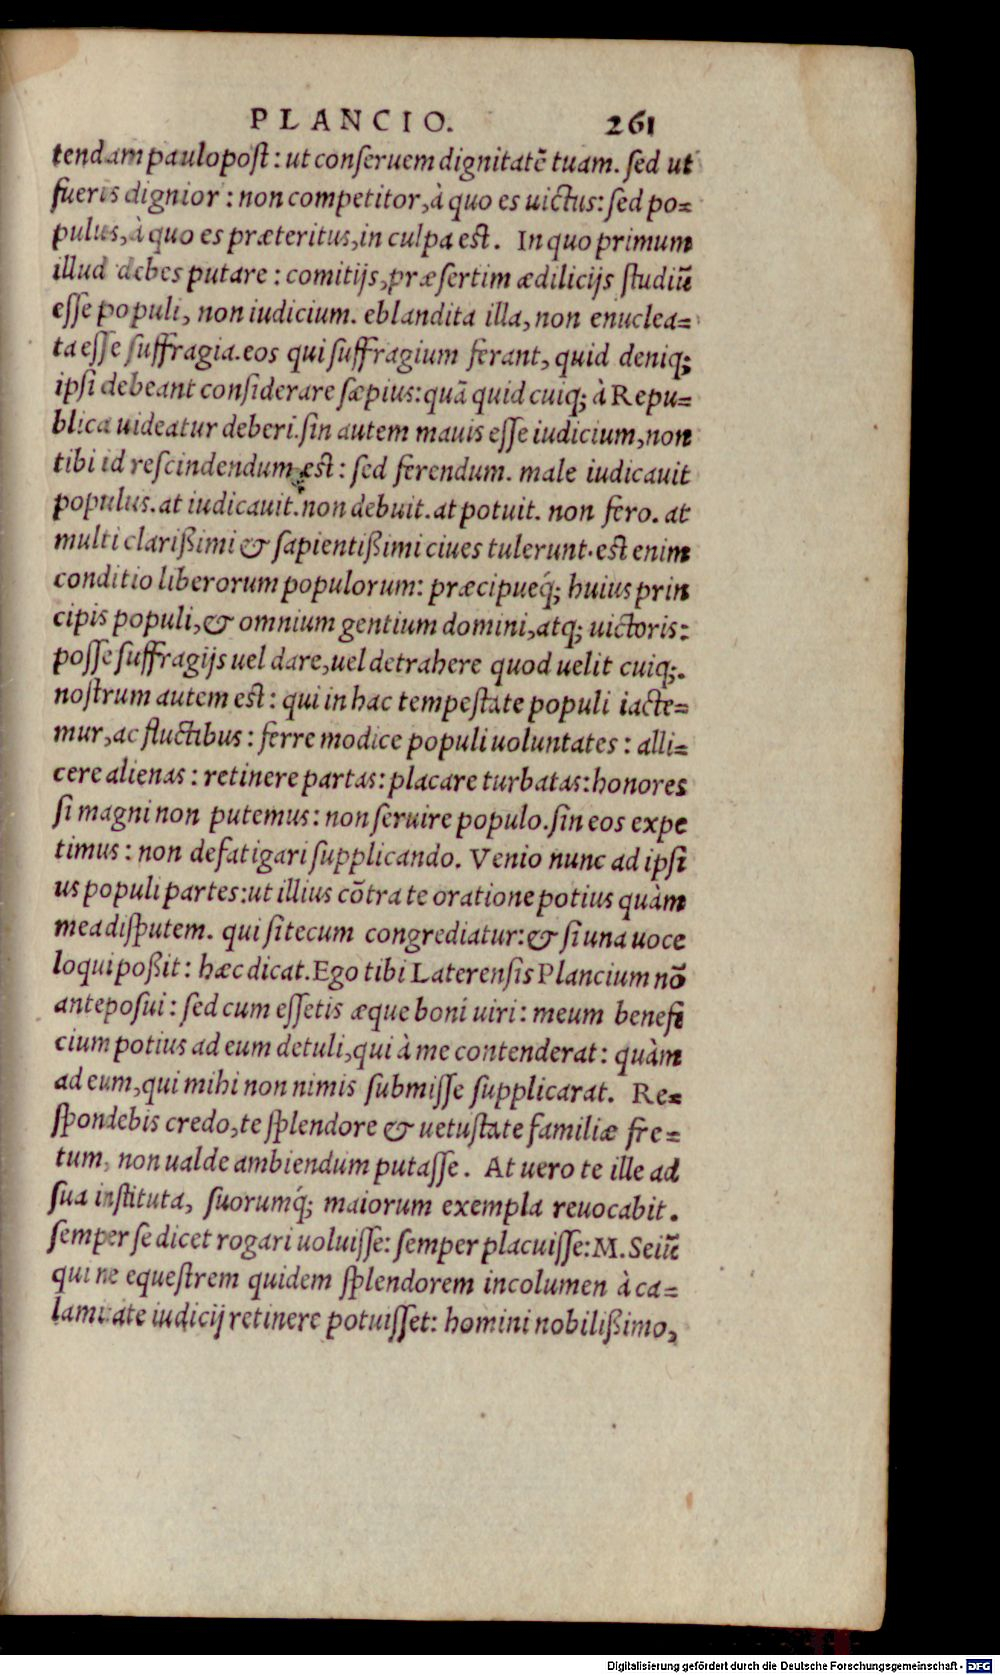 PLANCIO. 261
tendam paulopoſt : ut conſeruem dignitatē tuam. ſed ut
fueris dignior : non competitor, à quo es uictus: ſed po=
pulus, à quo es præteritus, in culpa est. In quo primum
illud debes putare : comitijs, præſertim ædilicijs ſtudiū
eſſe populi, non iudicium. eblandita illa, non enuclea=
ta eſſe ſuffragia. eos qui ſuffragium ferant, quid deniq;
ipſi debeant conſiderare ſæpius: quā quid cuiq; à Repu=
blica uideatur deberi. ſin autem mauis eſſe iudicium, non
tibi id reſcindendum est : ſed ferendum. male iudicauit
populus. at iudicauit. non debuit. at potuit. non fero. at
multi clarißimi & ſapientißimi ciues tulerunt. est enim
conditio liberorum populorum: præcipueq́; huius prin
cipis populi, & omnium gentium domini, atq; uictoris:
poſſe ſuffragijs uel dare, uel detrahere quod uelit cuiq;.
noſtrum autem est : qui in hac tempeſtate populi iacte=
mur, ac fluctibus : ferre modice populi uoluntates : alli=
cere alienas : retinere partas: placare turbatas: honores
ſi magni non putemus: non ſeruire populo. ſin eos expe
timus : non defatigari ſupplicando. Venio nunc ad ipſi
us populi partes: ut illius cōtra te oratione potius quàm
mea diſputem. qui ſi tecum congrediatur: & ſi una uoce
loqui poßit : hæc dicat. Ego tibi Laterenſis Plancium nō
antepoſui : ſed cum eſſetis æque boni uiri : meum benefi
cium potius ad eum detuli, qui à me contenderat : quàm
ad eum, qui mihi non nimis ſubmiſſe ſupplicarat. Re=
ſpondebis credo, te ſplendore & uetuſtate familiæ fre=
tum, non ualde ambiendum putaſſe. At uero te ille ad
ſua inſtituta, ſuorumq́; maiorum exempla reuocabit.
ſemper ſe dicet rogari uoluiſſe: ſemper placuiſſe: M. Seiū
qui ne equeſtrem quidem ſplendorem incolumen à ca=
lamitate iudicij retinere potuiſſet: homini nobilißimo,
Digitalisierung gefördert durch die Deutsche Forschungsgemeinschaft - DFG